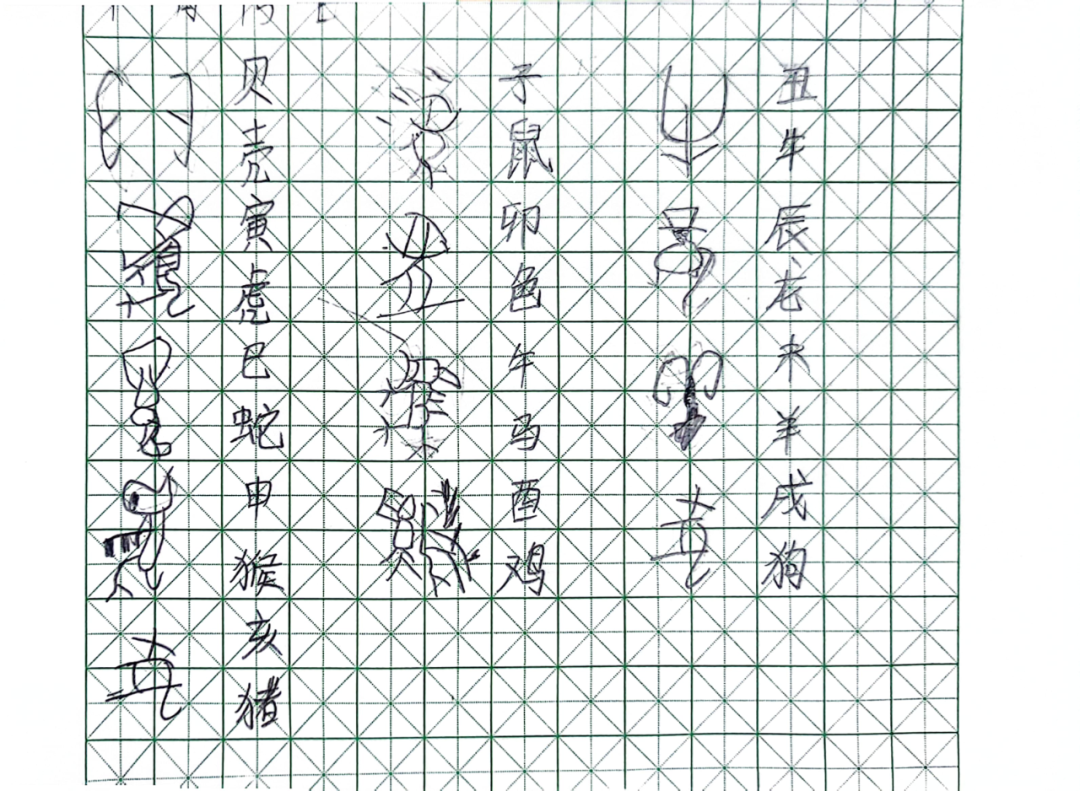 贝壳
子鼠
丑牛
寅虎
卯色
辰龙
巳蛇
午马
未羊
申猴
酉鸡
戌狗
亥猪